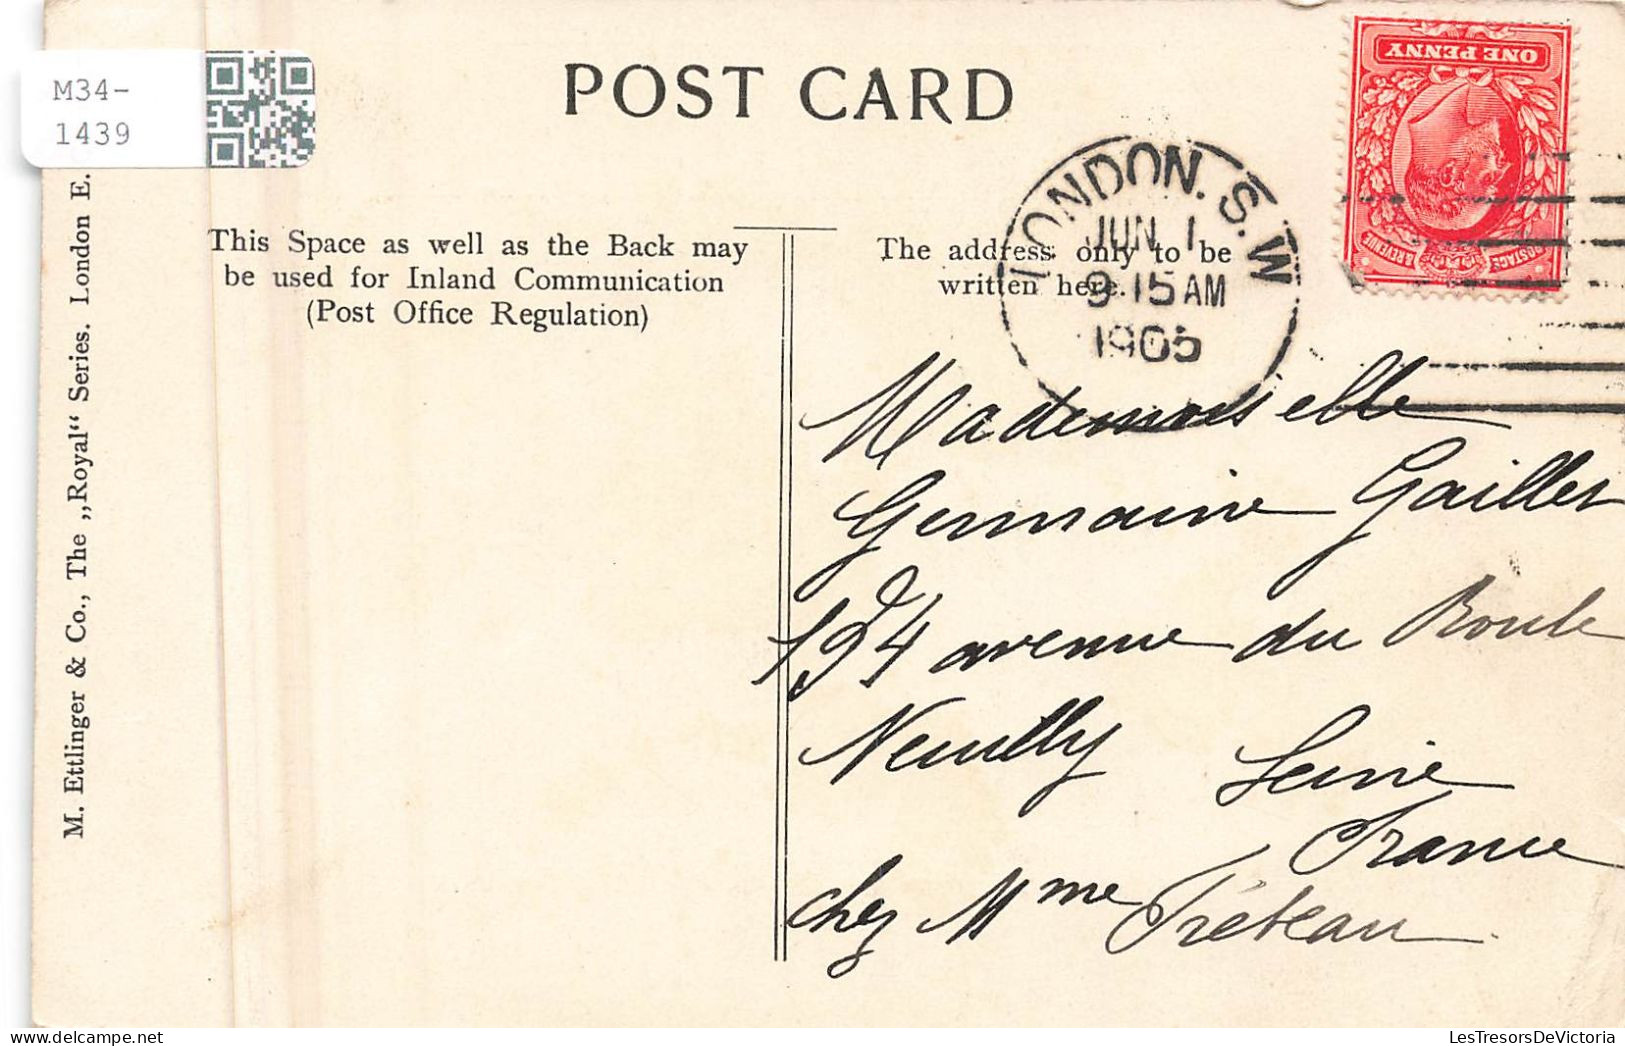 M34-
1439
POST CARD
ONE PENNY
POSTAGE & REVENUE
LONDON. S.W
JUN 1
9 15 AM
1905
This Space as well as the Back may
be used for Inland Communication
(Post Office Regulation)
The address only to be
written here.
M. Ettlinger & Co., The „Royal“ Series. London E.
Mademoiselle
Germaine Gaillet
194 avenue du Roule
Neuilly Seine
France
chez Mme Tréteau
LesTresorsDeVictoria
www.delcampe.net